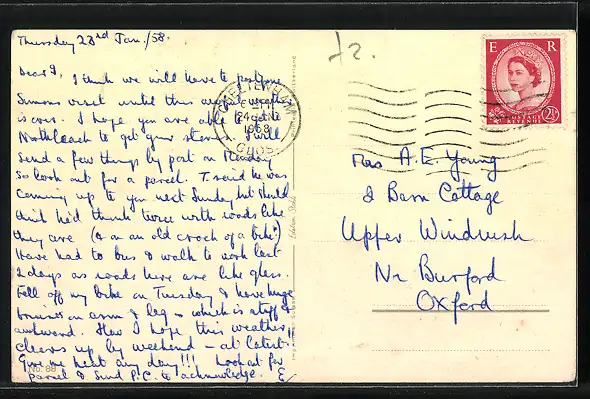 Thursday 23rd Jan./58.
Dear J, I think we will have to postpone
Simons visit until this awful weather
is over. I hope you are able to get to
Northleach to get your stores. I will
send a few things by post on Monday
so look out for a parcel. T. said he was
coming up to you next Sunday but should
think he'd think twice with roads like
they are (& on an old crock of a bike!)
Have had to bus & walk to work last
2 days as roads here are like glass.
Fell off my bike on Tuesday & have huge
bruises on arm & leg - which is stiff &
awkward. How I hope this weather
clears up by weekend - at latest.
Give me heat any day!!! Look out for
parcel & send P.C. to acknowledge. E
No. 88
72.
CHELTENHAM
24 JAN
1958
GLOS.
E R
POSTAGE REVENUE
2½
Mrs A. E. Young
2 Barn Cottage
Upper Windrush
Nr Burford
Oxford